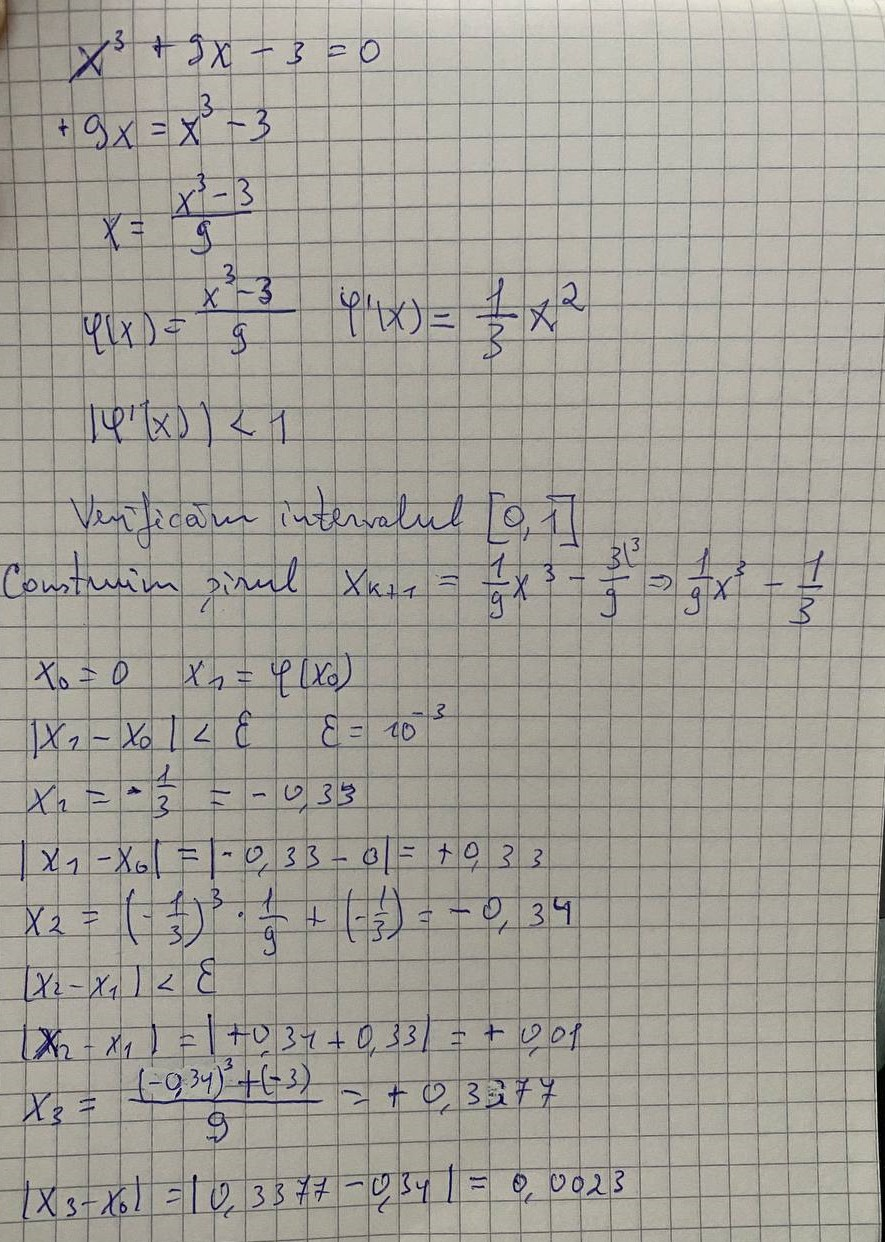 x³ + 9x - 3 = 0
+ 9x = x³ - 3
x = (x³ - 3)/9
φ(x) = (x³ - 3)/9   φ'(x) = 1/3 x²
|φ'(x)| < 1
Verificăm intervalul [0,1]
Construim șirul xₖ₊₁ = 1/9 x³ - 3⁽³/9 ⇒ 1/9 x³ - 1/3
x₀ = 0   x₁ = φ(x₀)
|x₁ - x₀| < ε   ε = 10⁻³
x₁ = - 1/3 = - 0,33
|x₁ - x₀| = |- 0,33 - 0| = + 0,33
x₂ = (- 1/3)³ · 1/9 + (- 1/3) = - 0,34
|x₂ - x₁| < ε
|x₂ - x₁| = |+0,34 + 0,33| = + 0,01
x₃ = ((-0,34)³ + (-3))/9 = + 0,3377
|x₃ - x₀| = |0,3377 - 0,34| = 0,0023